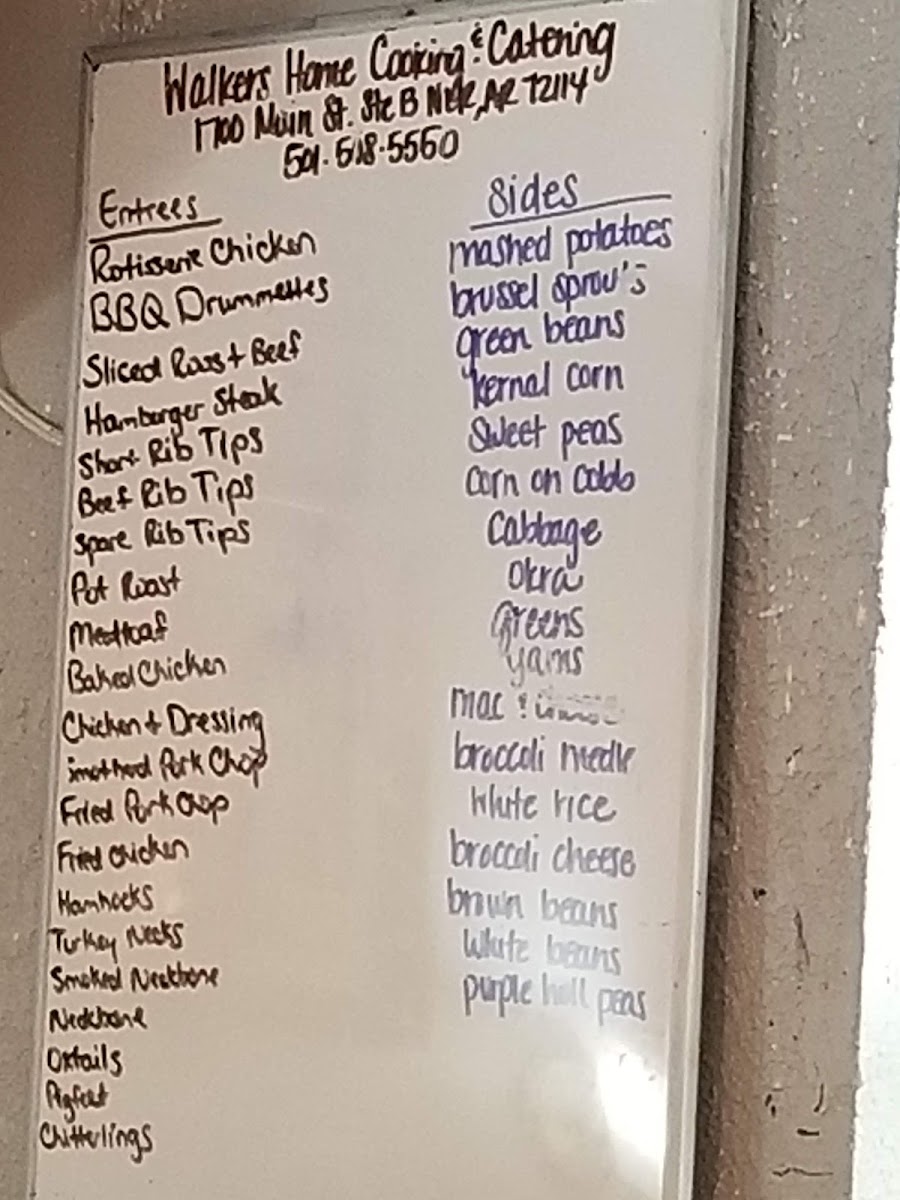 Walkers Home Cooking & Catering
1700 Main St. Ste B NLR, AR 72114
501-518-5550
Entrees
Rotisserie Chicken
BBQ Drummettes
Sliced Roast Beef
Hamburger Steak
Short Rib Tips
Beef Rib Tips
Spare Rib Tips
Pot Roast
Meatloaf
Baked Chicken
Chicken & Dressing
Smothered Pork Chop
Fried Pork Chop
Fried Chicken
Hamhocks
Turkey Necks
Smoked Neckbone
Neckbone
Oxtails
Pigfeet
Chitterlings
Sides
mashed potatoes
brussel sprouts
green beans
kernal corn
Sweet peas
Corn on cobb
Cabbage
Okra
Greens
yams
mac & cheese
broccoli medle
White rice
broccoli cheese
brown beans
White beans
purple hull peas